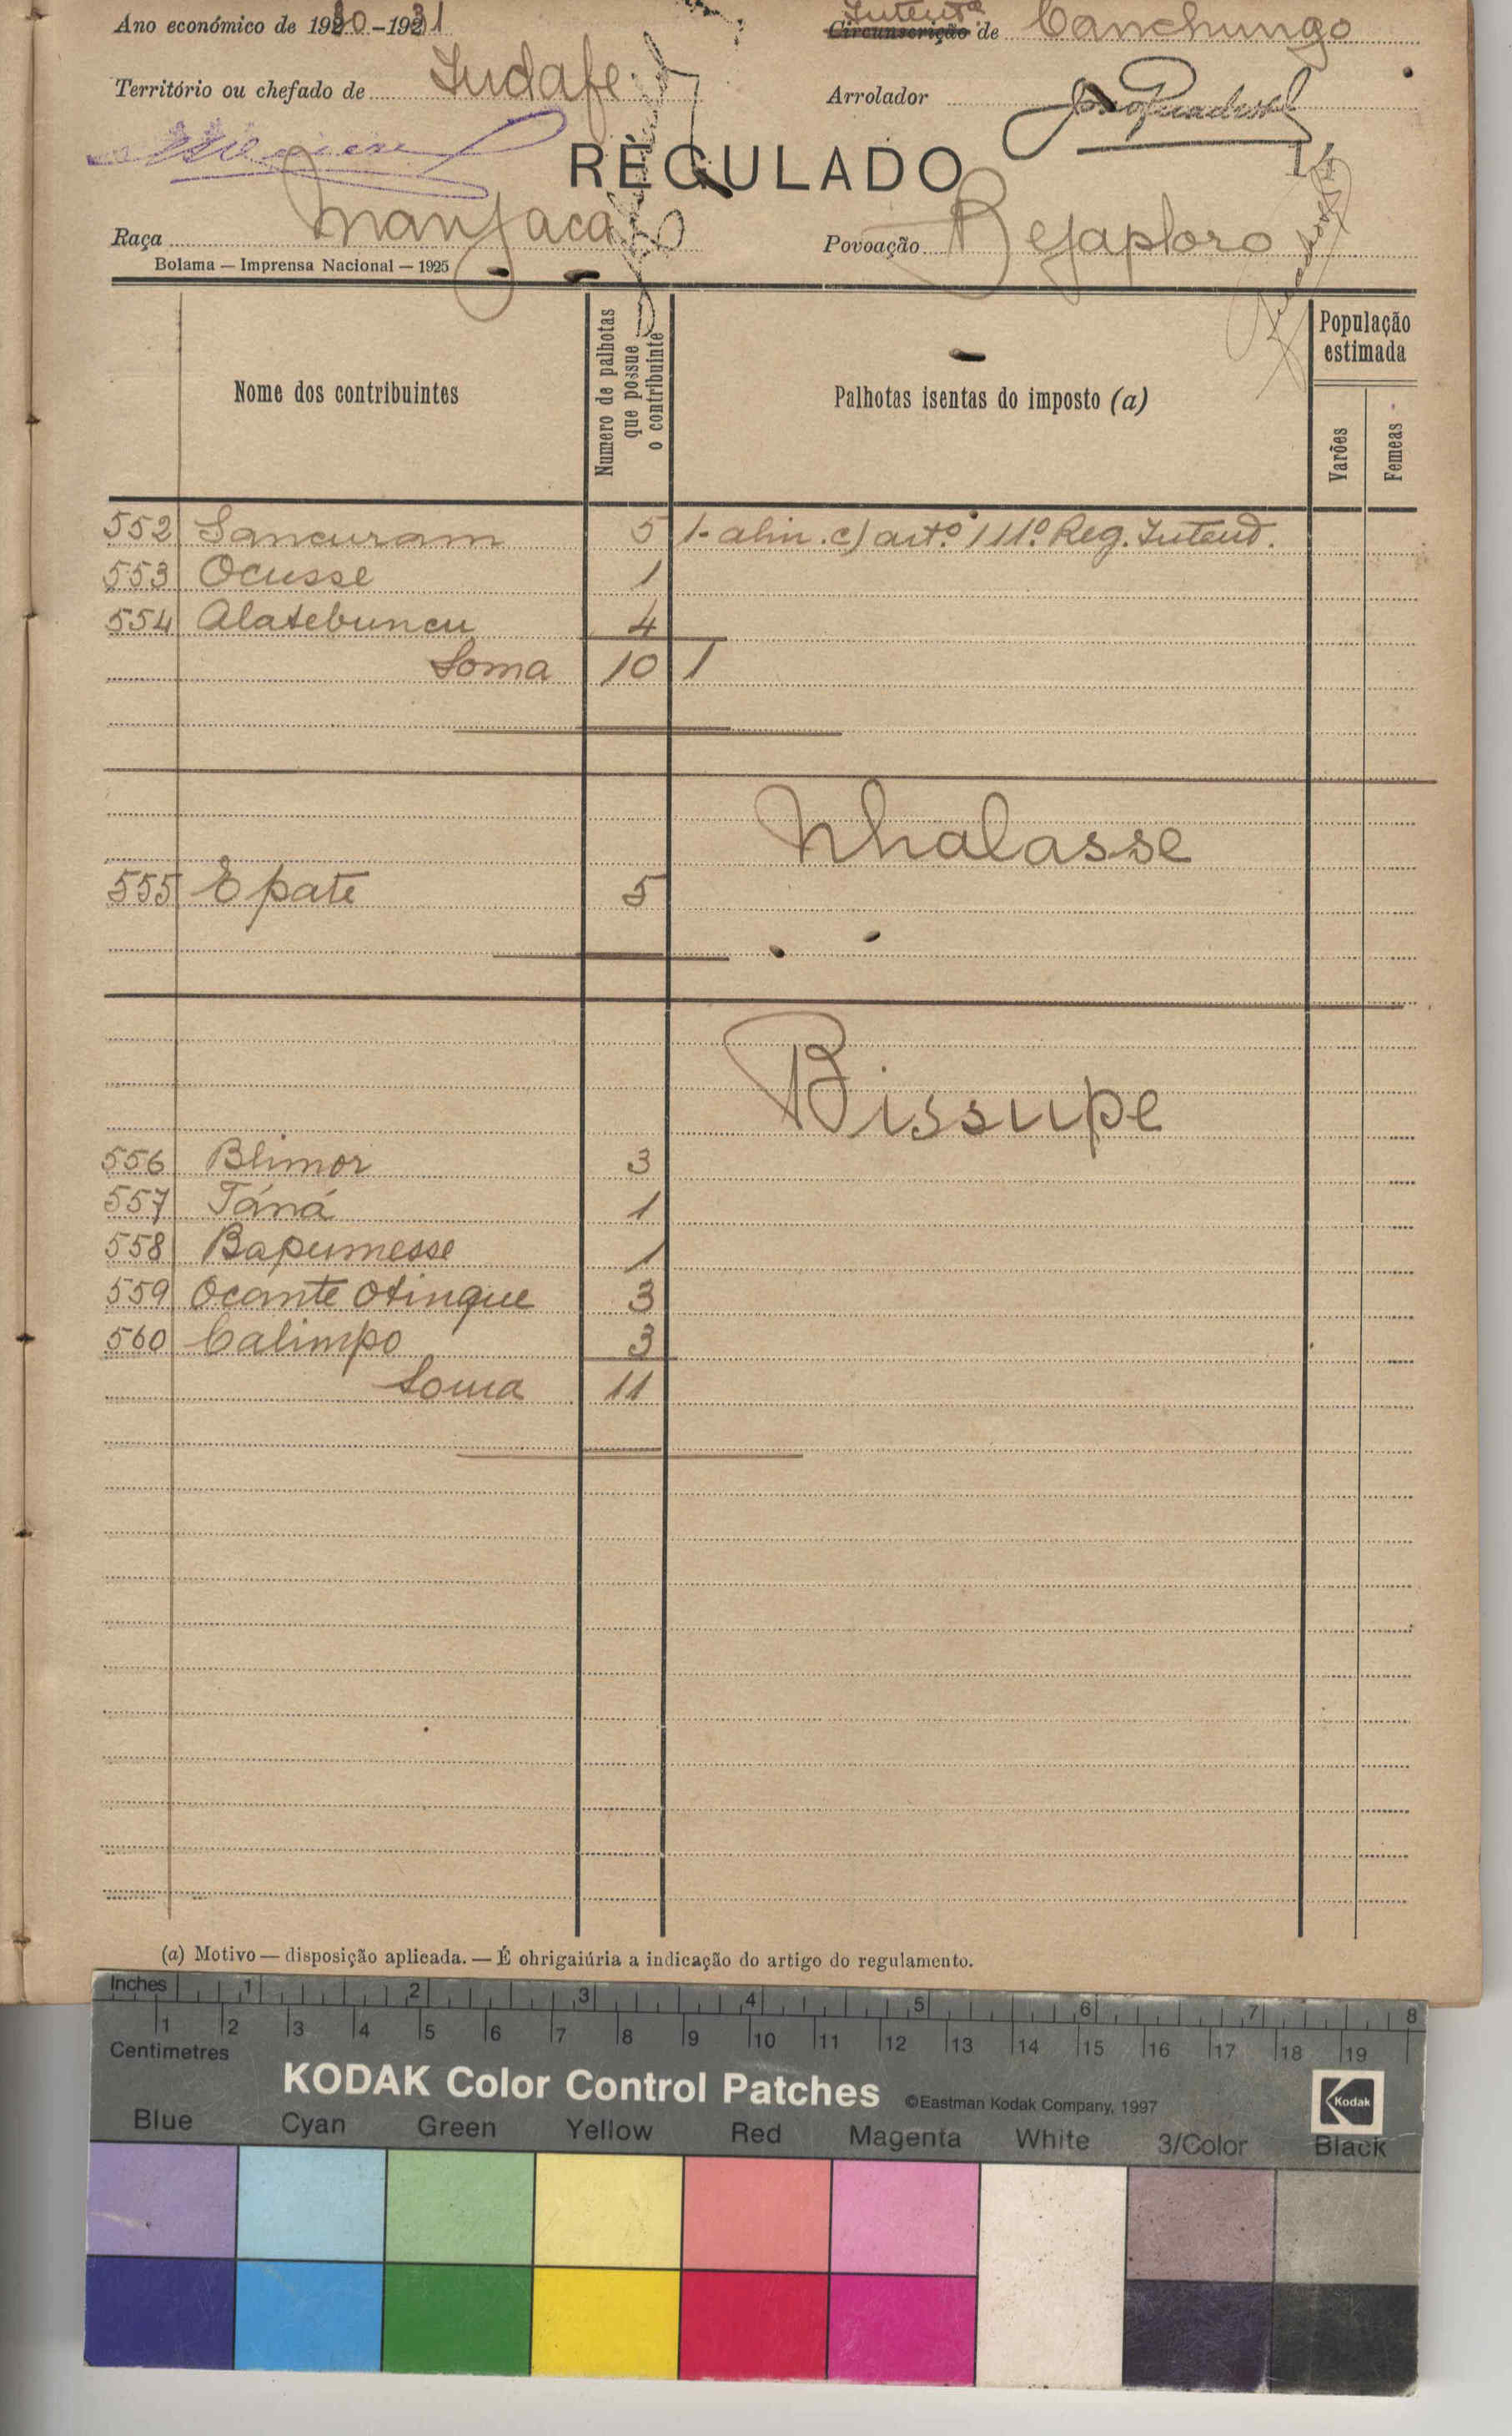 Ano económico de 1930-1931 Intend.ª
Circunscrição de Canchungo
Território ou chefado de Indafe
Arrolador
RÈGULADO
14
Raça Manjaca
Povoação Bejaploro
Bolama — Imprensa Nacional — 1925
Nome dos contribuintes
Numero de palhotas
que possue
o contribuinte
Palhotas isentas do imposto (a)
População
estimada
Varões
Femeas
552 Sancuram 5 1- alin. c) art.º 111º Reg. Intend.
553 Ocusse 1
554 Alatebuncu 4
Soma 10 1
Nhalasse
555 Epate 5
Bissupe
556 Blimor 3
557 Táná 1
558 Bapumesse 1
559 Ocante Otinque 3
560 Calimpo 3
Soma 11
(a) Motivo — disposição aplicada. — É ohrigaiúria a indicação do artigo do regulamento.
Inches 1 2 3 4 5 6 7 8
1 2 3 4 5 6 7 8 9 10 11 12 13 14 15 16 17 18 19
Centimetres
KODAK Color Control Patches ©Eastman Kodak Company, 1997 Kodak
Blue Cyan Green Yellow Red Magenta White 3/Color Black